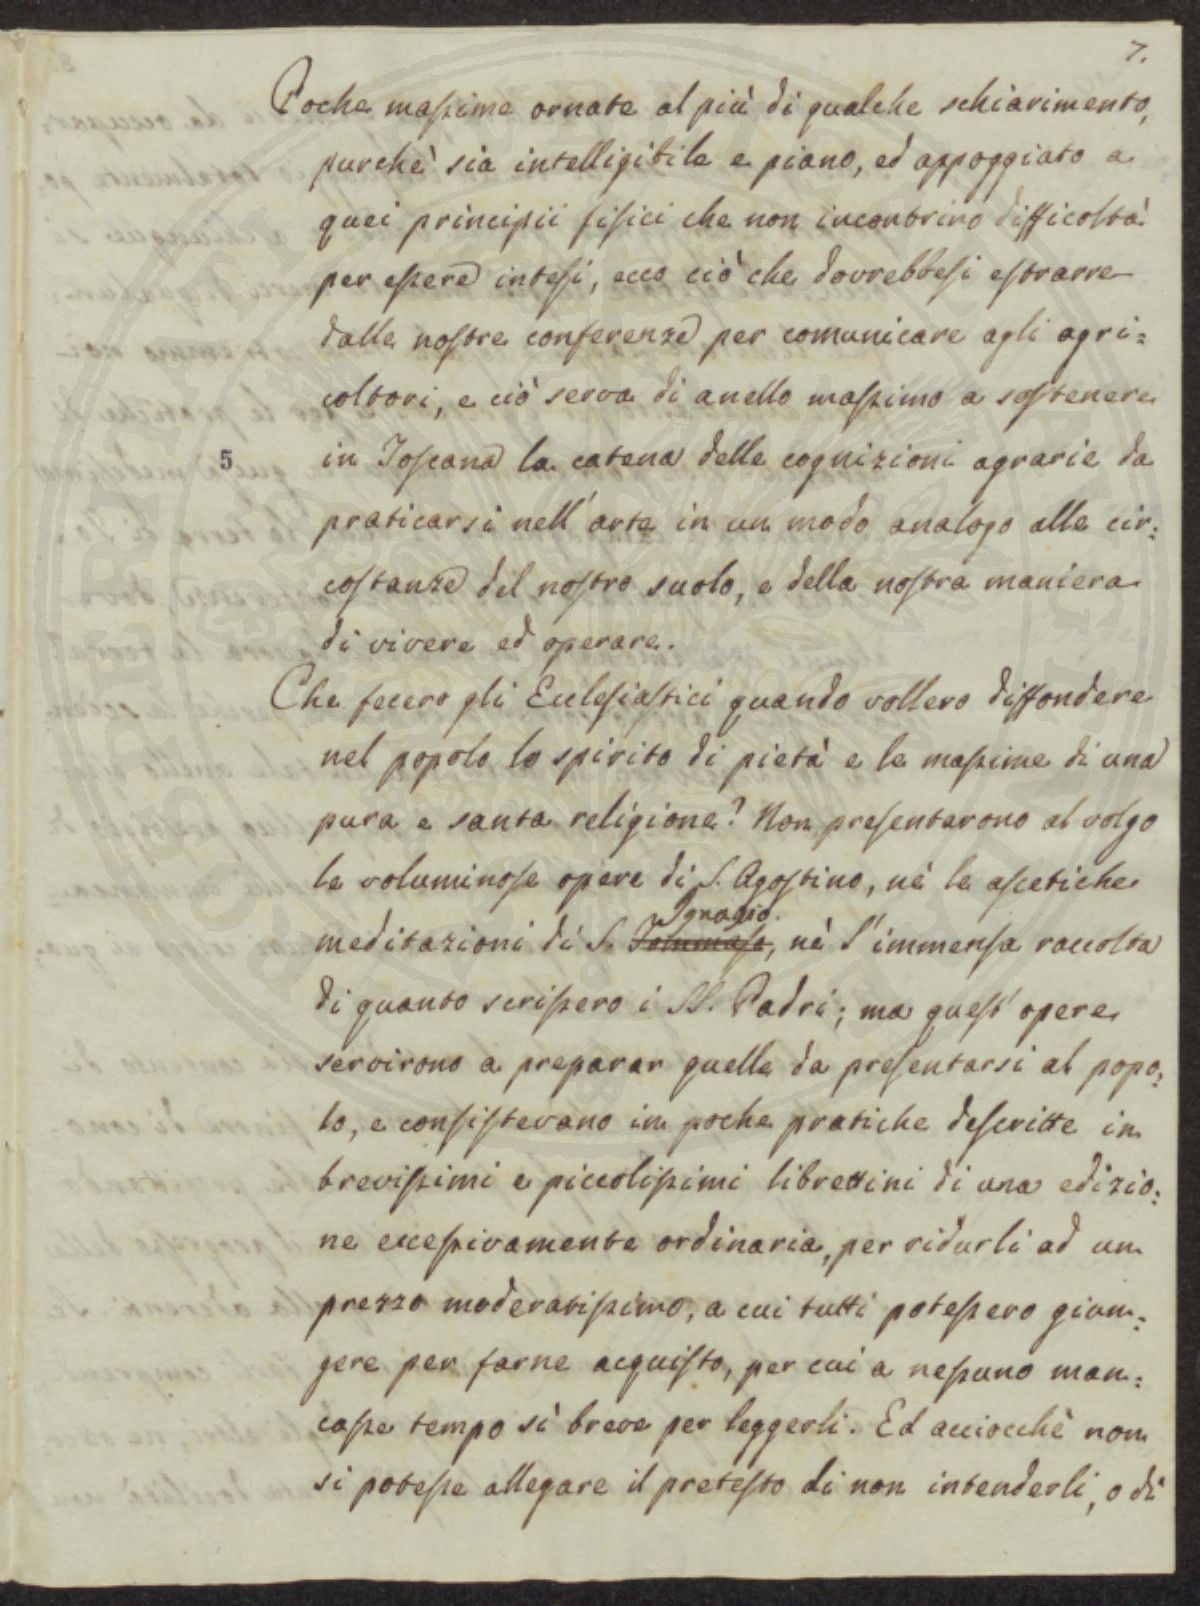 7.
Poche massime ornate al più di qualche schiarimento,
purchè sia intelligibile e piano, ed appoggiato a
quei principii fisici che non incontrino difficoltà
per essere intesi, ecco ciò che dovrebbesi estrarre
dalle nostre conferenze per comunicare agli agri=
coltori, e ciò serva di anello massimo a sostenere
5 in Toscana la catena delle cognizioni agrarie da
praticarsi nell'arte in un modo analogo alle cir=
costanze del nostro suolo, e della nostra maniera
di vivere ed operare.
Che fecero gli Ecclesiastici quando vollero diffondere
nel popolo lo spirito di pietà e le massime di una
pura e santa religione? Non presentarono al volgo
le voluminose opere di S. Agostino, nè le ascetiche
Ignazio
meditazioni di S. Tommaso, nè l'immensa raccolta
di quanto scrissero i SS. Padri; ma quest'opere
servirono a preparar quelle da presentarsi al popo=
lo, e consistevano in poche pratiche descritte in
brevissimi e piccolissimi librettini di una edizio=
ne eccessivamente ordinaria, per ridurli ad un
prezzo moderatissimo, a cui tutti potessero giun=
gere per farne acquisto, per cui a nessuno man=
casse tempo sì breve per leggerli. Ed acciocchè non
si potesse allegare il pretesto di non intenderli, o di